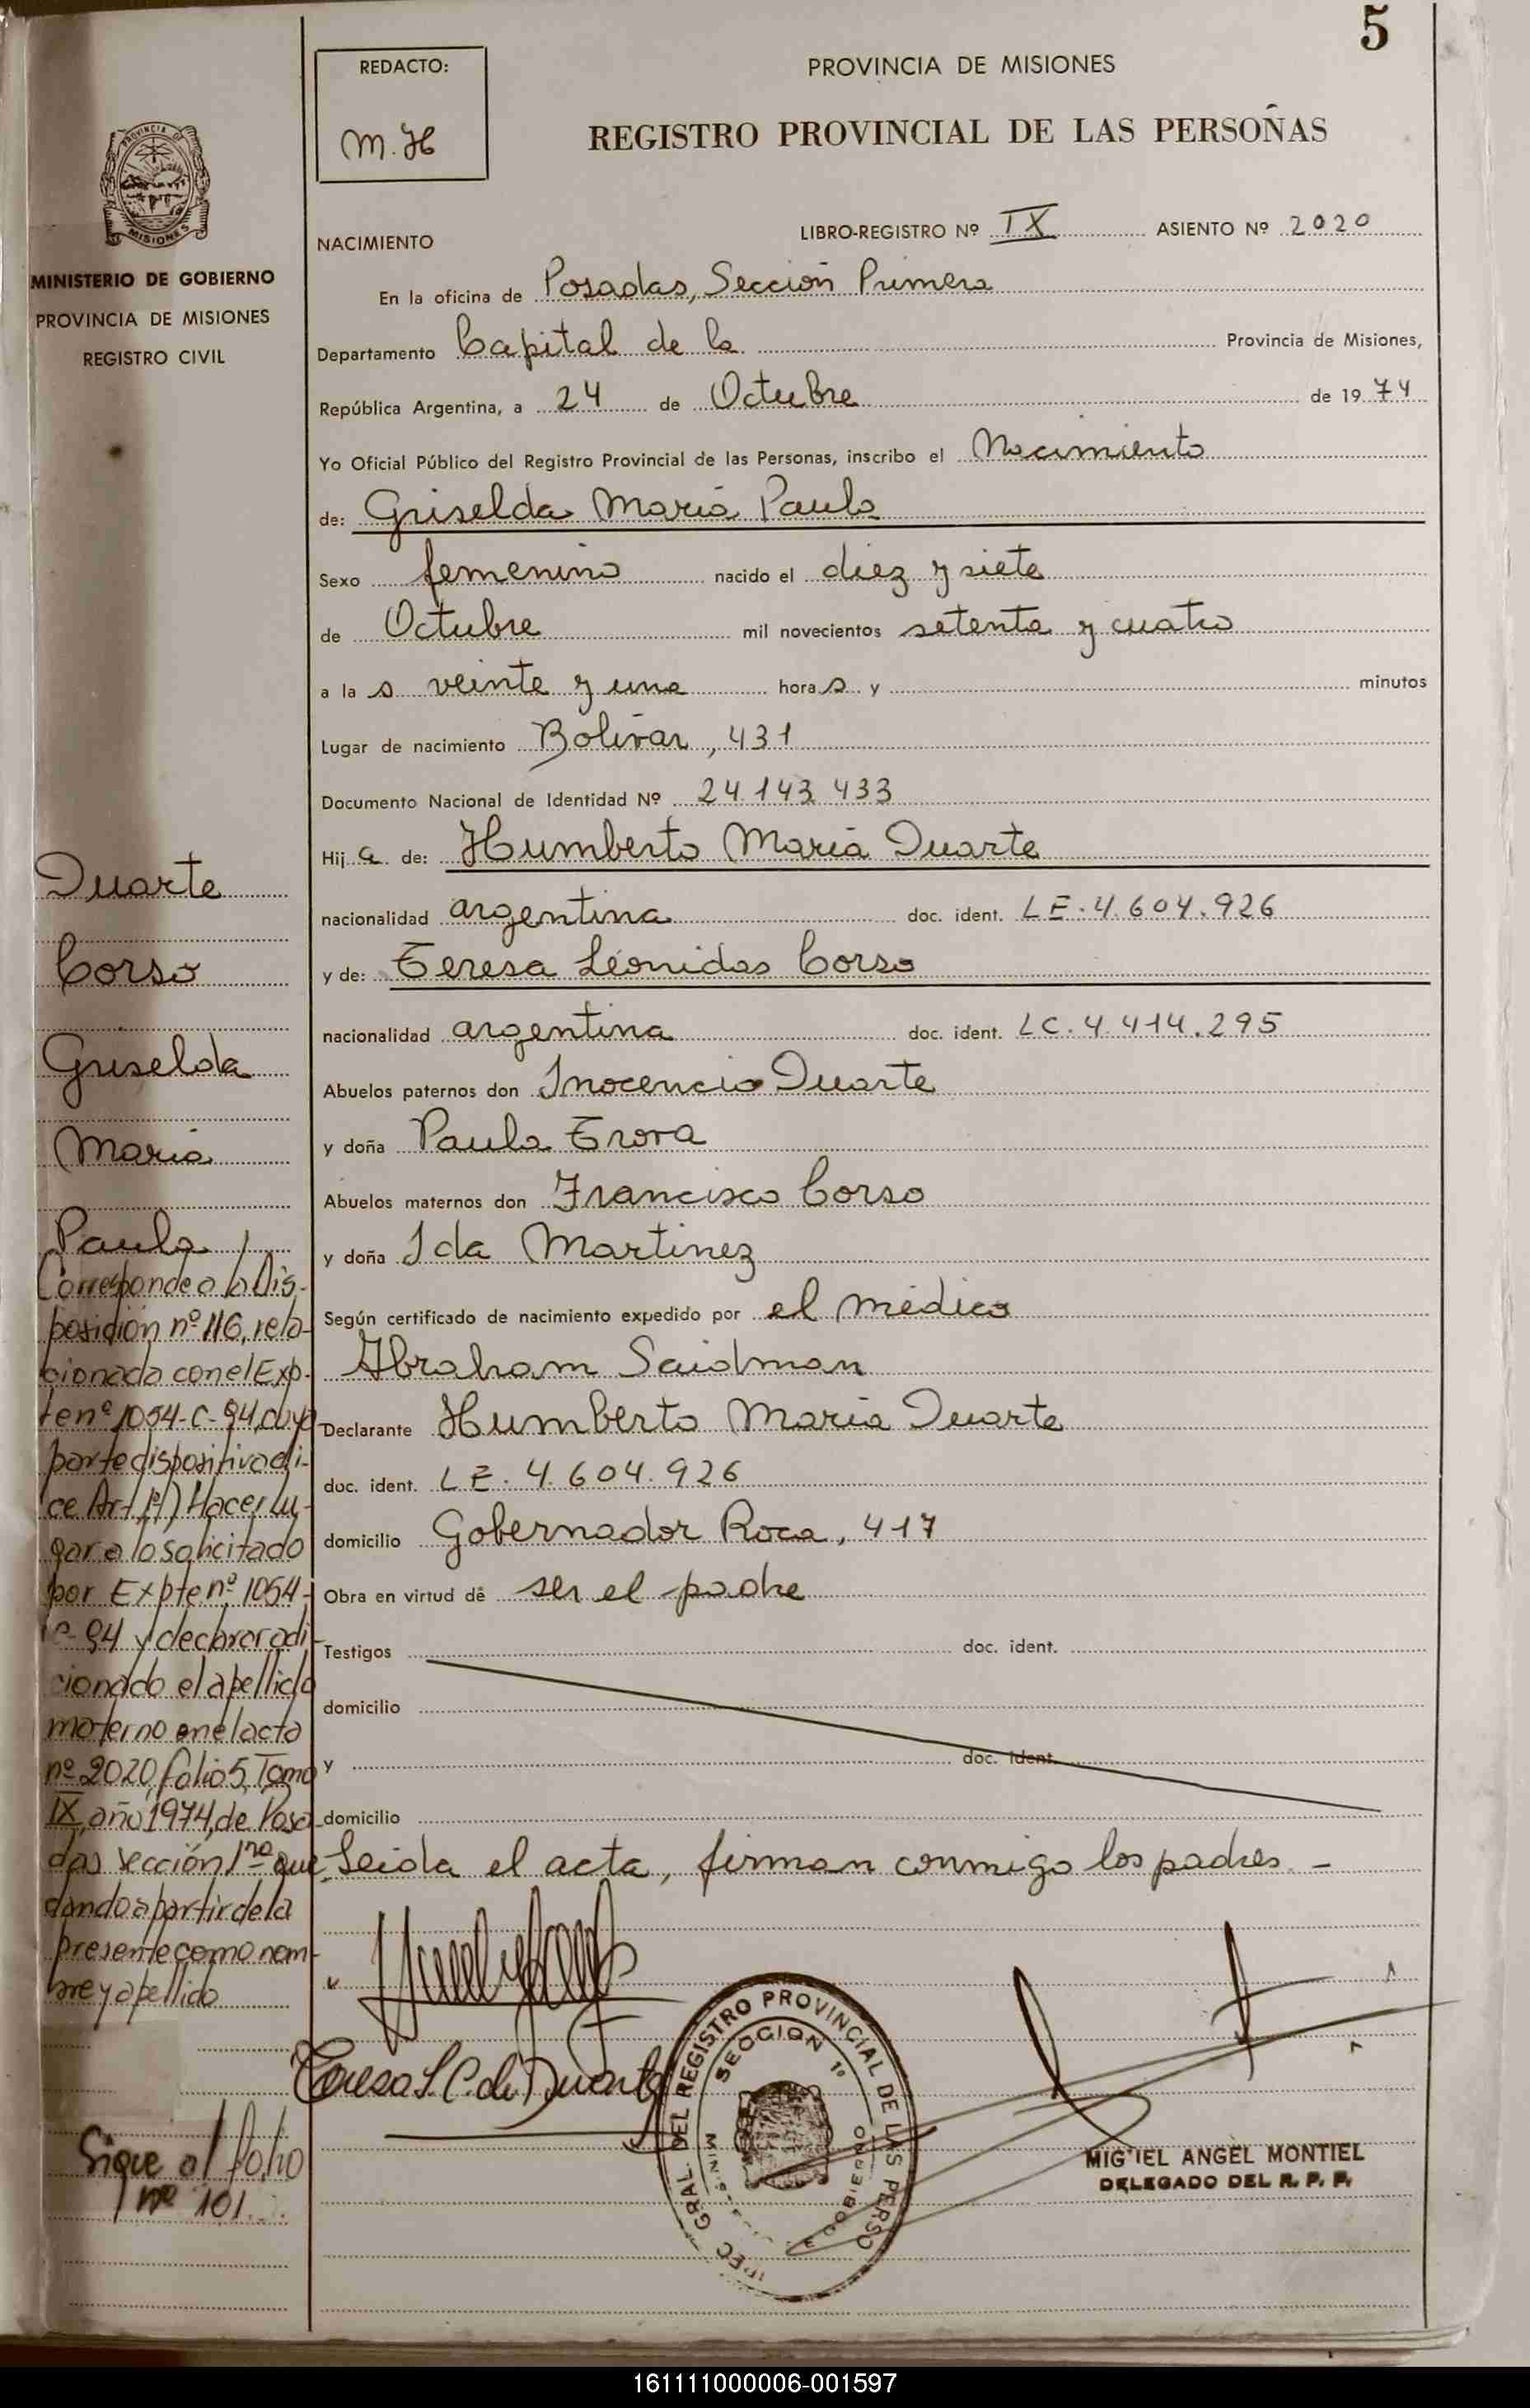 5
REDACTO:
M. H
PROVINCIA DE MISIONES
REGISTRO PROVINCIAL DE LAS PERSOÑAS
PROVINCIA DE
MISIONES
MINISTERIO DE GOBIERNO
PROVINCIA DE MISIONES
REGISTRO CIVIL
NACIMIENTO
LIBRO-REGISTRO Nº IX ASIENTO Nº 2020
En la oficina de Posadas, Sección Primera
Departamento Capital de la Provincia de Misiones,
República Argentina, a 24 de Octubre de 1974
Yo Oficial Público del Registro Provincial de las Personas, inscribo el Nacimiento
de: Griselda María Paula
Sexo femenino nacido el diez y siete
de Octubre mil novecientos setenta y cuatro
a las veinte y una horas y minutos
Lugar de nacimiento Bolívar, 431
Documento Nacional de Identidad Nº 24.143.433
Hija de: Humberto María Duarte
nacionalidad argentina doc. ident. LE. 4.604.926
y de: Teresa Leonidas Corso
nacionalidad argentina doc. ident. LC. 4.414.295
Abuelos paternos don Inocencio Duarte
y doña Paula
Abuelos maternos don Francisco Corso
y doña Ida Martinez
Según certificado de nacimiento expedido por el médico
Abraham Saidman
Declarante Humberto María Duarte
doc. ident. LE. 4.604.926
domicilio Gobernador Roca, 417
Obra en virtud de ser el padre
Testigos doc. ident.
domicilio
y doc. ident.
domicilio
Leída el acta, firman conmigo los padres. -
Teresa L. C. de Duarte
GRAL. DEL REGISTRO PROVINCIAL DE LAS PERSO
SECCION 1º
GOBIERNO
MIGUEL ANGEL MONTIEL
DELEGADO DEL R. P. P.
Duarte
Corso
Griselda
María
Paula /
Corresponde a la Dis-
posición nº 116, rela-
cionada con el Exp-
te nº 1054-C-94, cuya
parte dispositiva di-
ce Art 1º) Hacer lu-
gar a lo solicitado
por Expte nº 1054-
C-94 y declarar adi
cionado el apellido
materno en el acta
nº 2020, folio 5, Tomo
IX, año 1974, de Posa-
das sección 1ra que
dando a partir de la
presente como nom-
bre y apellido
Sigue al folio
nº 101.
161111000006-001597